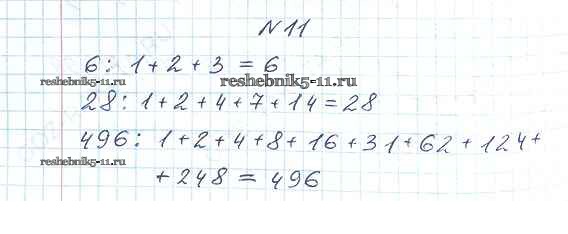 № 11
6: 1 + 2 + 3 = 6
reshebnik5-11.ru
reshebnik5-11.ru
28: 1 + 2 + 4 + 7 + 14 = 28
496: 1 + 2 + 4 + 8 + 16 + 31 + 62 + 124 +
reshebnik5-11.ru
+ 248 = 496